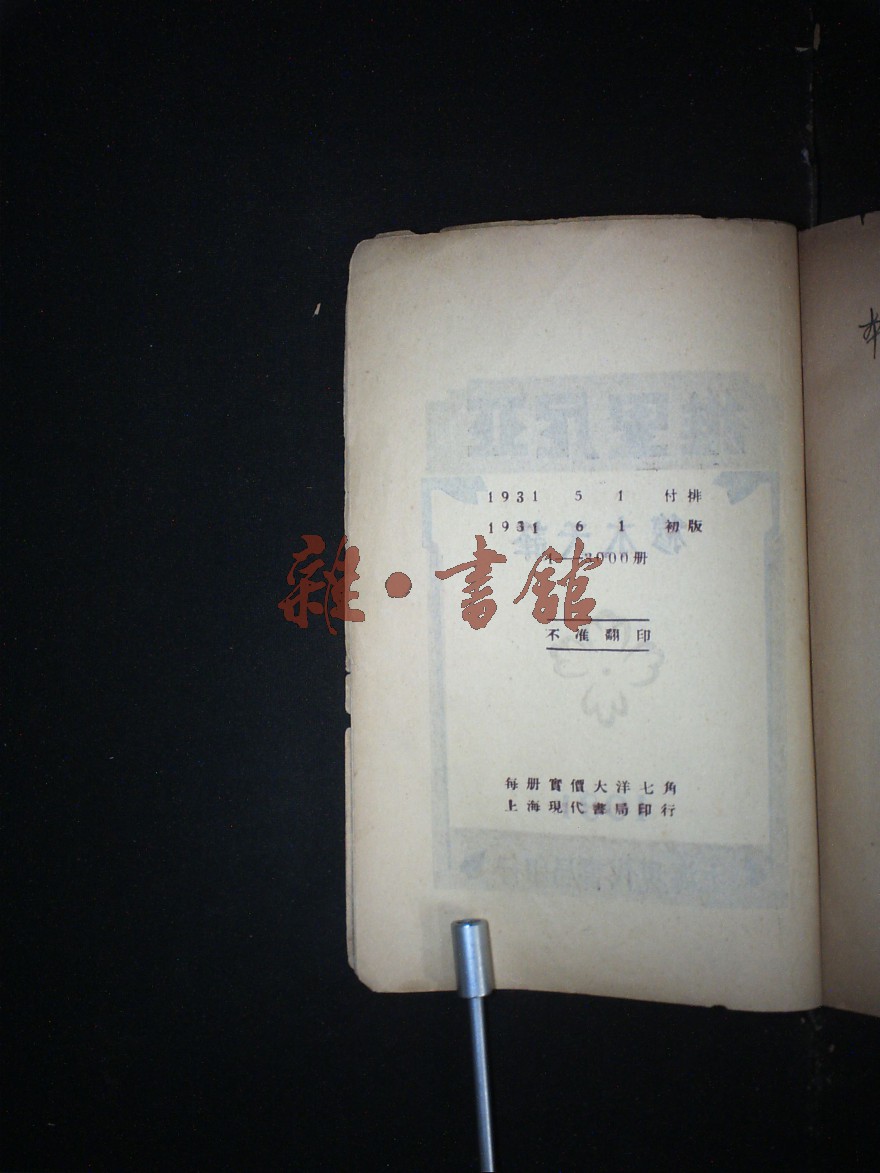 1931 5 1 付排
1931 6 1 初版
1—2000册
雜·書館
不准翻印
每册實價大洋七角
上海現代書局印行